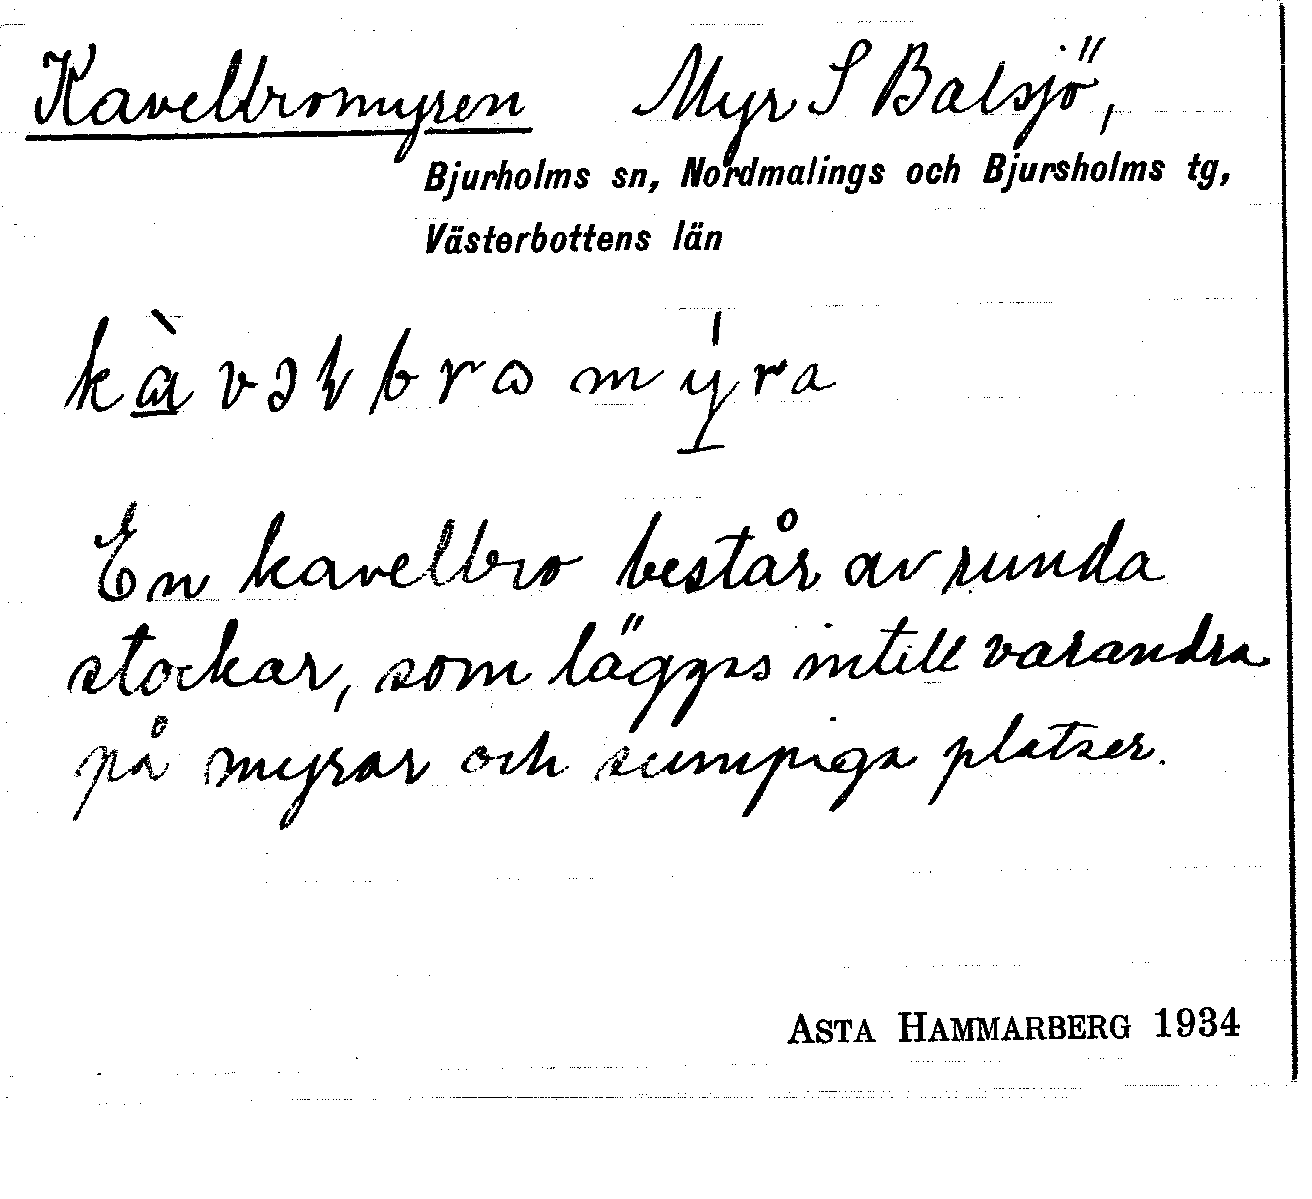 Kavelbromyren Myr S Balsjö,
Bjurholms sn, Nordmalings och Bjursholms tg,
Västerbottens län
kàvəɫbrωmýra
En kavelbro består av runda
stockar, som lägges intill varandra
på myrar och sumpiga platser.
ASTA HAMMARBERG 1934